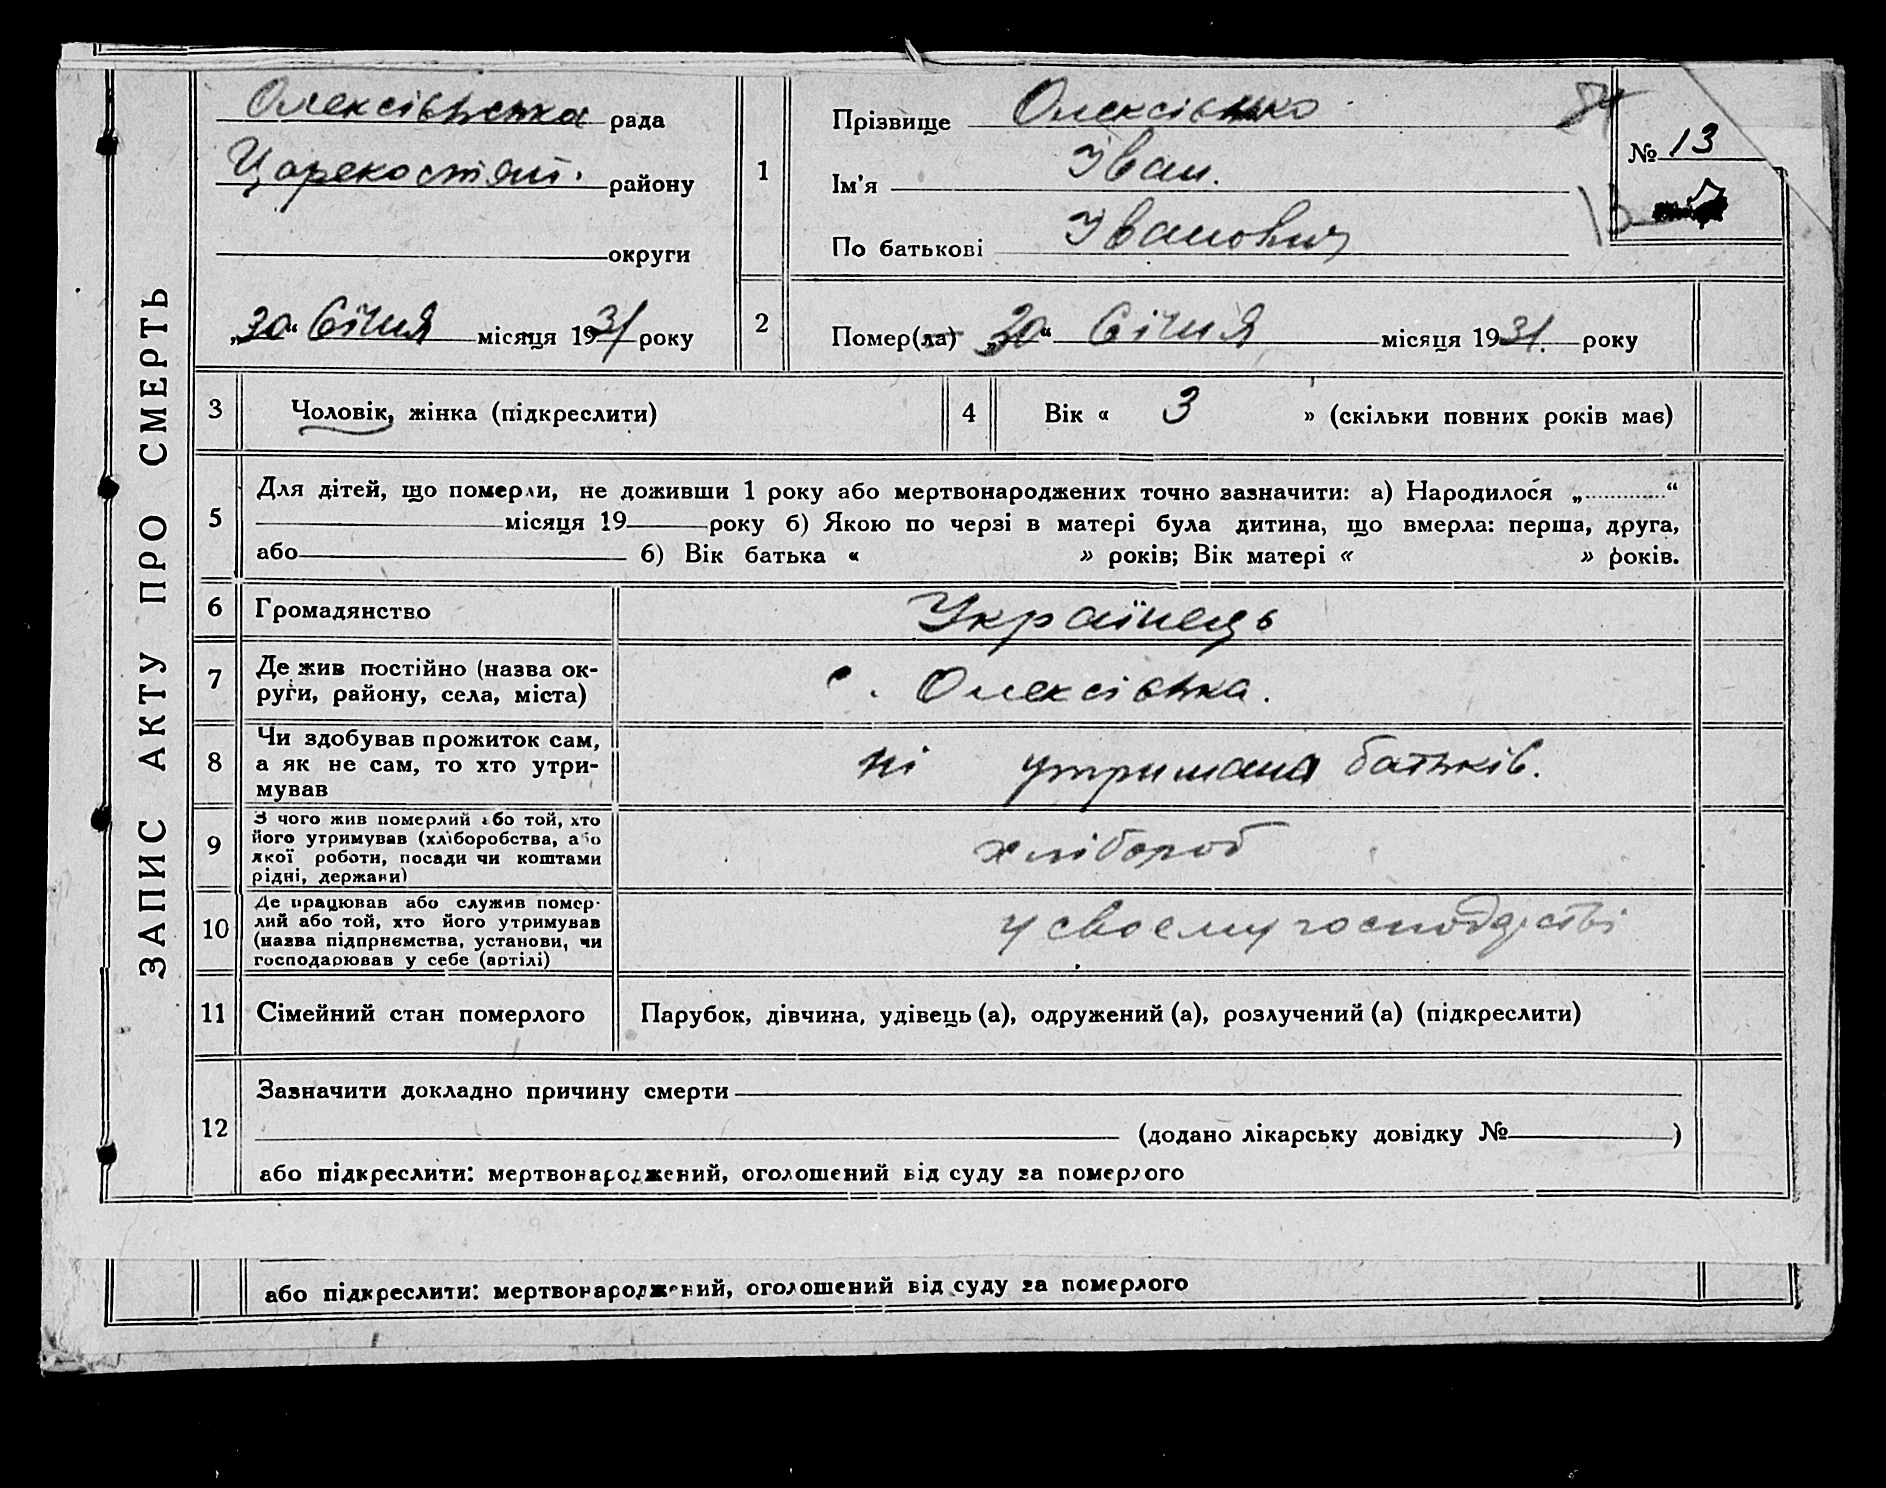 ЗАПИС АКТУ ПРО СМЕРТЬ
Олексівська рада
Царекостянт. району
округи
„30“ Січня місяця 1931 року
1
Прізвище Олексієнко
Ім'я Іван.
По батькові Іванович
№ 13
2
Помер(ла) „30“ Січня місяця 1931. року
3 Чоловік, жінка (підкреслити)
4 Вік « 3 » (скільки повних років має)
5
Для дітей, що померли, не доживши 1 року або мертвонароджених точно зазначити: а) Народилося „ “
місяця 19 року б) Якою по черзі в матері була дитина, що вмерла: перша, друга,
або б) Вік батька « » років; Вік матері « » років.
6 Громадянство Українець
7 Де жив постійно (назва ок-
руги, району, села, міста) с. Олексівка.
8 Чи здобував прожиток сам,
а як не сам, то хто утри-
мував ні утримана батьків.
9 З чого жив померлий або той, хто
його утримував (хліборобства, або
якої роботи, посади чи коштами
рідні, держави) хлібороб
10 Де працював або служив помер-
лий або той, хто його утримував
(назва підприємства, установи, чи
господарював у себе (артілі) у своєму господарстві
11 Сімейний стан померлого Парубок, дівчина, удівець (а), одружений (а), розлучений (а) (підкреслити)
12
Зазначити докладно причину смерти
(додано лікарську довідку № )
або підкреслити: мертвонароджений, оголошений від суду за померлого
або підкреслити: мертвонароджений, оголошений від суду за померлого